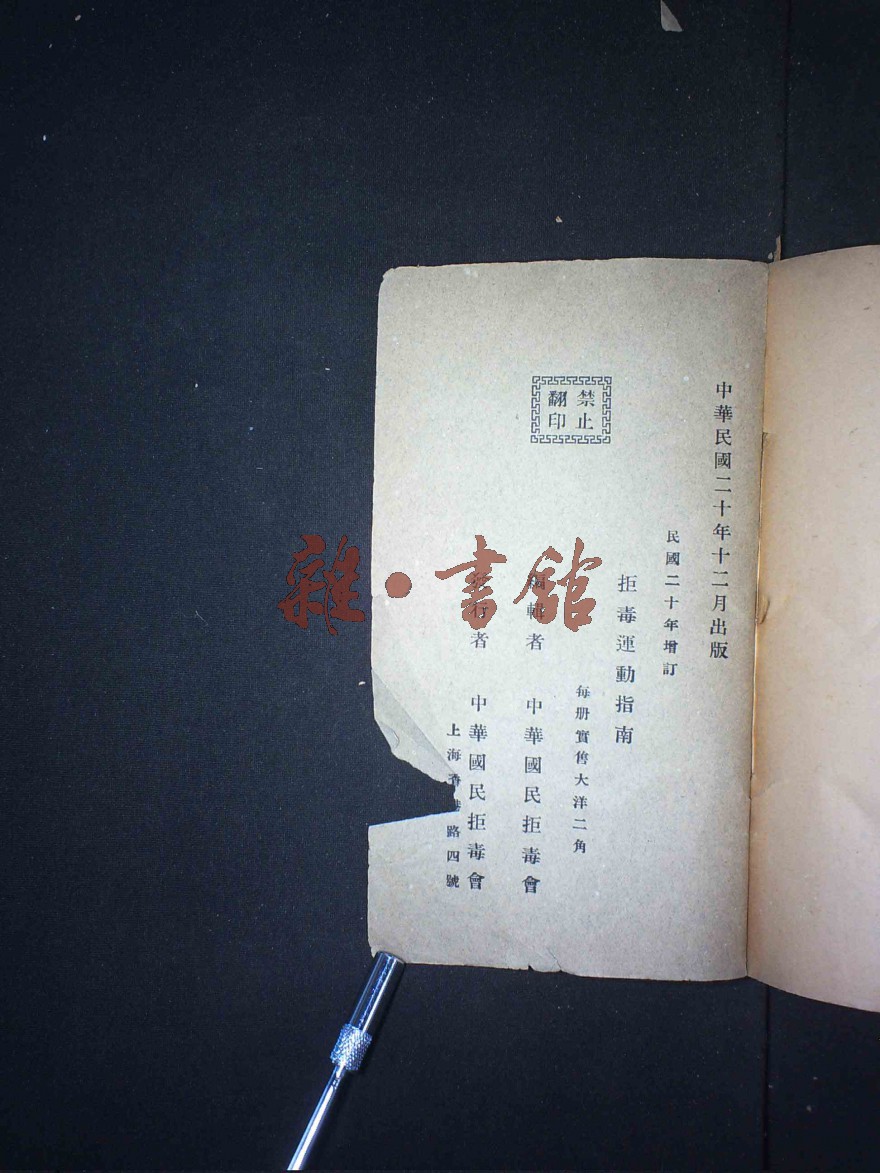 中華民國二十年十二月出版
民國二十年增訂
拒毒運動指南
每册實售大洋二角
禁止
翻印
編輯者 中華國民拒毒會
行者 中華國民拒毒會
上海香港路四號
雜·書館